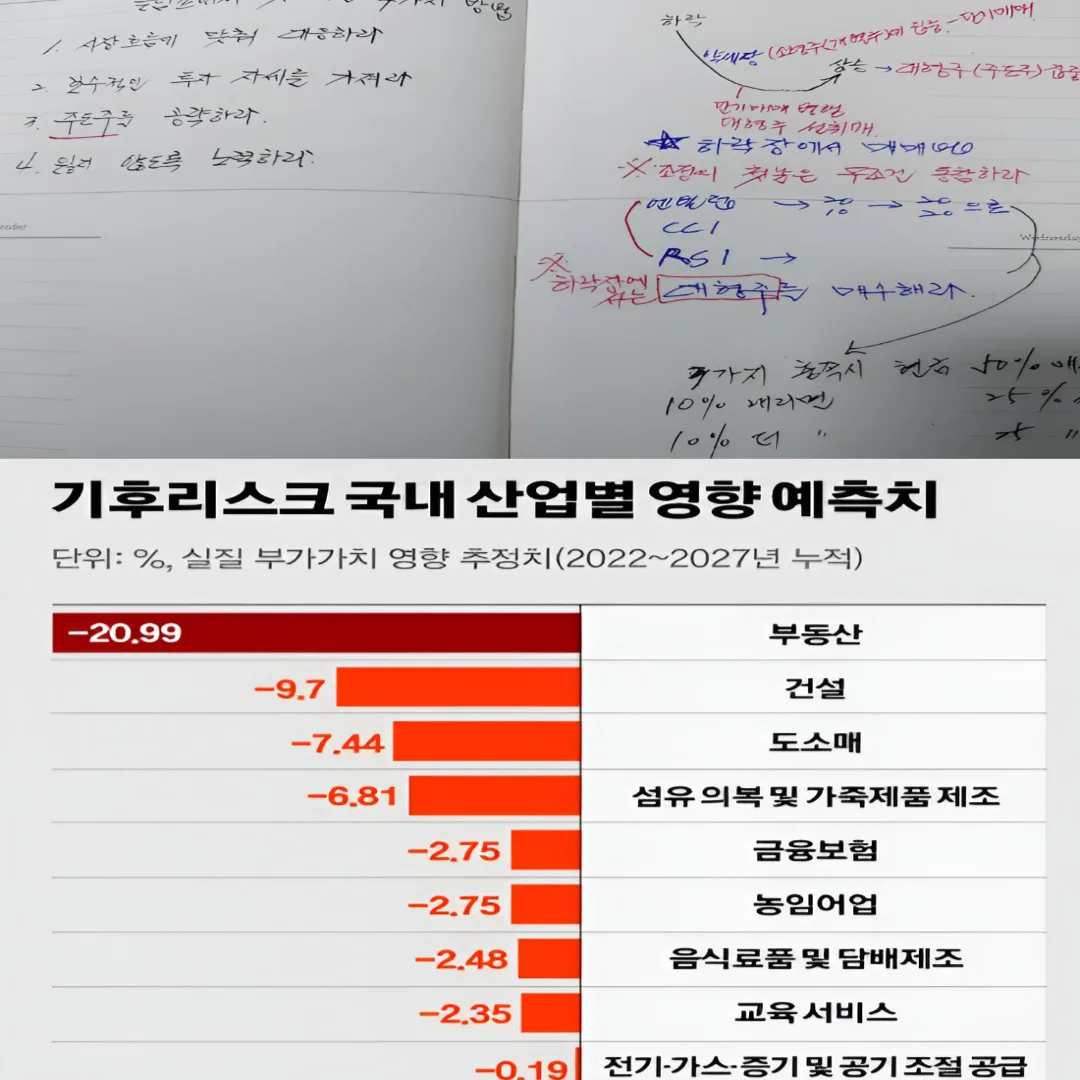 방법
1. 시장흐름에 맞춰 대응하라
2. 보수적인 투자 자세를 가져라
3. 주도주를 공략하라.
4. 잃지 않도록 노력하라.
하락
약세장
상승 → 대형주 (주도주)
단기매매 변형
대형주 선취매
☆ 하락장에서 매매
※ 조건 무조건 통합하라
엔벨럽 → 20/10 → 20/20 으로
CCI
RSI →
※ 하락장에
대형주를 매수해라.
가지 충족시 현금 50%
10% 내리면 25%
10% 더 " 25 "
Wednesday
기후리스크 국내 산업별 영향 예측치
단위: %, 실질 부가가치 영향 추정치(2022~2027년 누적)
-20.99 부동산
-9.7 건설
-7.44 도소매
-6.81 섬유 의복 및 가죽제품 제조
-2.75 금융보험
-2.75 농임어업
-2.48 음식료품 및 담배제조
-2.35 교육 서비스
-0.19 전기·가스·증기 및 공기 조절 공급